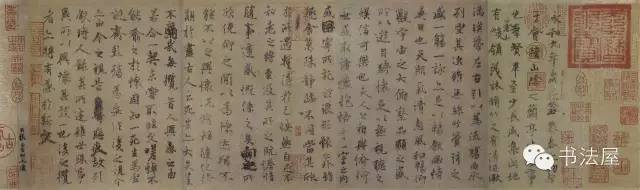 永和九年歲在癸丑暮春之初會
于會稽山陰之蘭亭脩禊事
也羣賢畢至少長咸集此地
有峻領茂林脩竹又有清流激
湍暎帶左右引以為流觴曲水
列坐其次雖無絲竹管絃之
盛一觴一詠亦足以暢敘幽情
是日也天朗氣清惠風和暢仰
觀宇宙之大俯察品類之盛
所以遊目騁懷足以極視聽之
娛信可樂也夫人之相與俯仰
一世或取諸懷抱悟言一室之內
或因寄所託放浪形骸之外雖
趣舍萬殊靜躁不同當其欣
於所遇蹔得於己怏然自足不
知老之將至及其所之既惓情
隨事遷感慨係之矣向之所欣
俛仰之閒以為陳跡猶不
能不以之興懷況脩短隨化終
期於盡古人云死生亦大矣豈
不痛哉每攬昔人興感之由
若合一契未嘗不臨文嗟悼不
能喻之於懷固知一死生為虛
誕齊彭殤為妄作後之視今
亦由今之視昔悲夫故列
敘時人錄其所述雖世殊事
異所以興懷其致一也後之攬
者亦將有感於斯文
书法屋